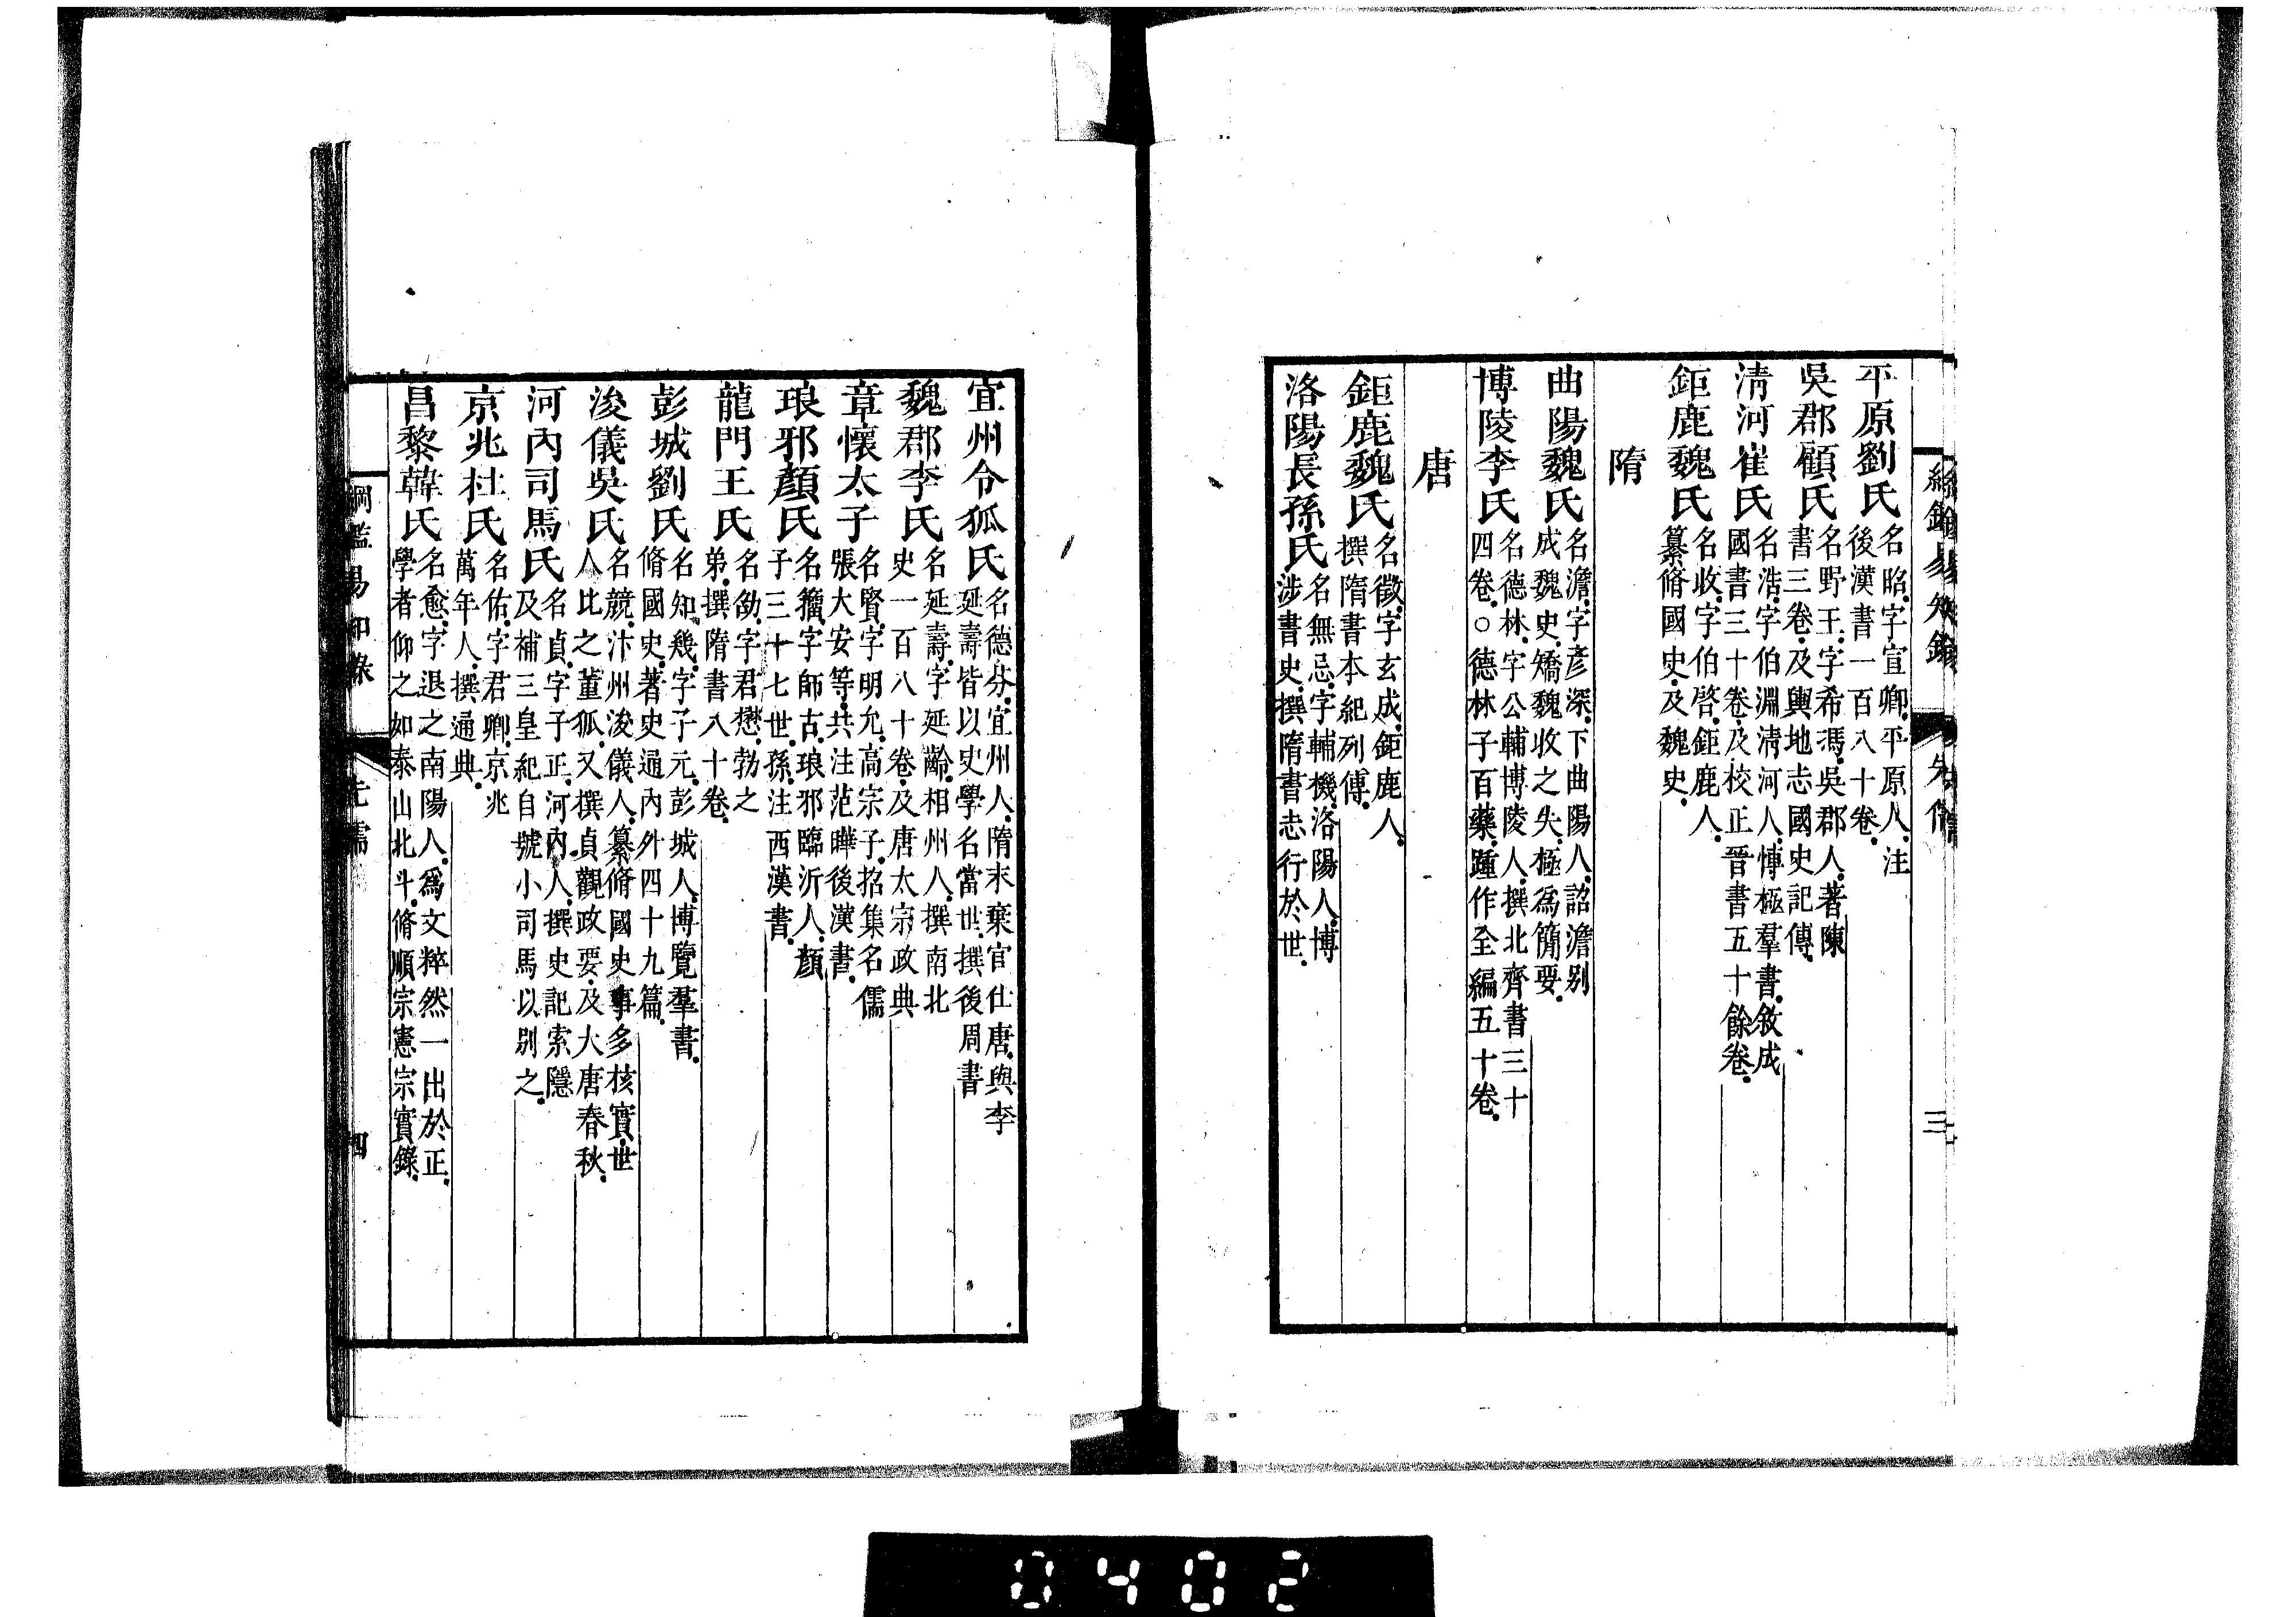 平原劉氏名昭字宣卿平原人注
後漢書一百八十卷
吳郡顧氏名野王字希馮吳郡人著陳
書三卷及輿地志國史記傳
清河崔氏名浩字伯淵清河人博極羣書敘成
國書三十卷及校正晉書五十餘卷
鉅鹿魏氏名收字伯啓鉅鹿人
纂脩國史及魏史
隋
曲陽魏氏名澹字彥深下曲陽人詔澹別
成魏史矯魏收之失極爲簡要
博陵李氏名德林字公輔博陵人撰北齊書三十
四卷○德林子百藥踵作全編五十卷
唐
鉅鹿魏氏名徵字玄成鉅鹿人
撰隋書本紀列傳
洛陽長孫氏名無忌字輔機洛陽人博
涉書史撰隋書志行於世
三
宜州令狐氏名德棻宜州人隋末棄官仕唐與李
延壽皆以史學名當世撰後周書
魏郡李氏名延壽字延齡相州人撰南北
史一百八十卷及唐太宗政典
章懷太子名賢字明允高宗子招集名儒
張大安等共注范曄後漢書
琅邪顏氏名籀字師古琅邪臨沂人顏
子三十七世孫注西漢書
龍門王氏名勔字君懋勃之
弟撰隋書八十卷
彭城劉氏名知幾字子元彭城人博覽羣書
脩國史著史通內外四十九篇
浚儀吳氏名競汴州浚儀人纂脩國史事多核實世
人比之董狐又撰貞觀政要及大唐春秋
河內司馬氏名貞字子正河內人撰史記索隱
及補三皇紀自號小司馬以別之
京兆杜氏名佑字君卿京兆
萬年人撰通典
昌黎韓氏名愈字退之南陽人爲文粹然一出於正
學者仰之如泰山北斗脩順宗憲宗實錄
綱鑑易知錄 先儒 四
0402